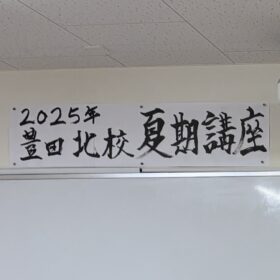 2025年
豊田北校 夏期講座